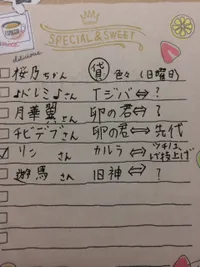 SPECIAL & SWEET
桜乃ちゃん 貸 色々 (日曜日)
♪ドレミ♪さん Tジバ⇔?
月華翼さん 卵の君⇔?
チビデブさん 卵の君⇔先代
リンさん カルラ⇔ツチノコ
さん 旧神⇔?